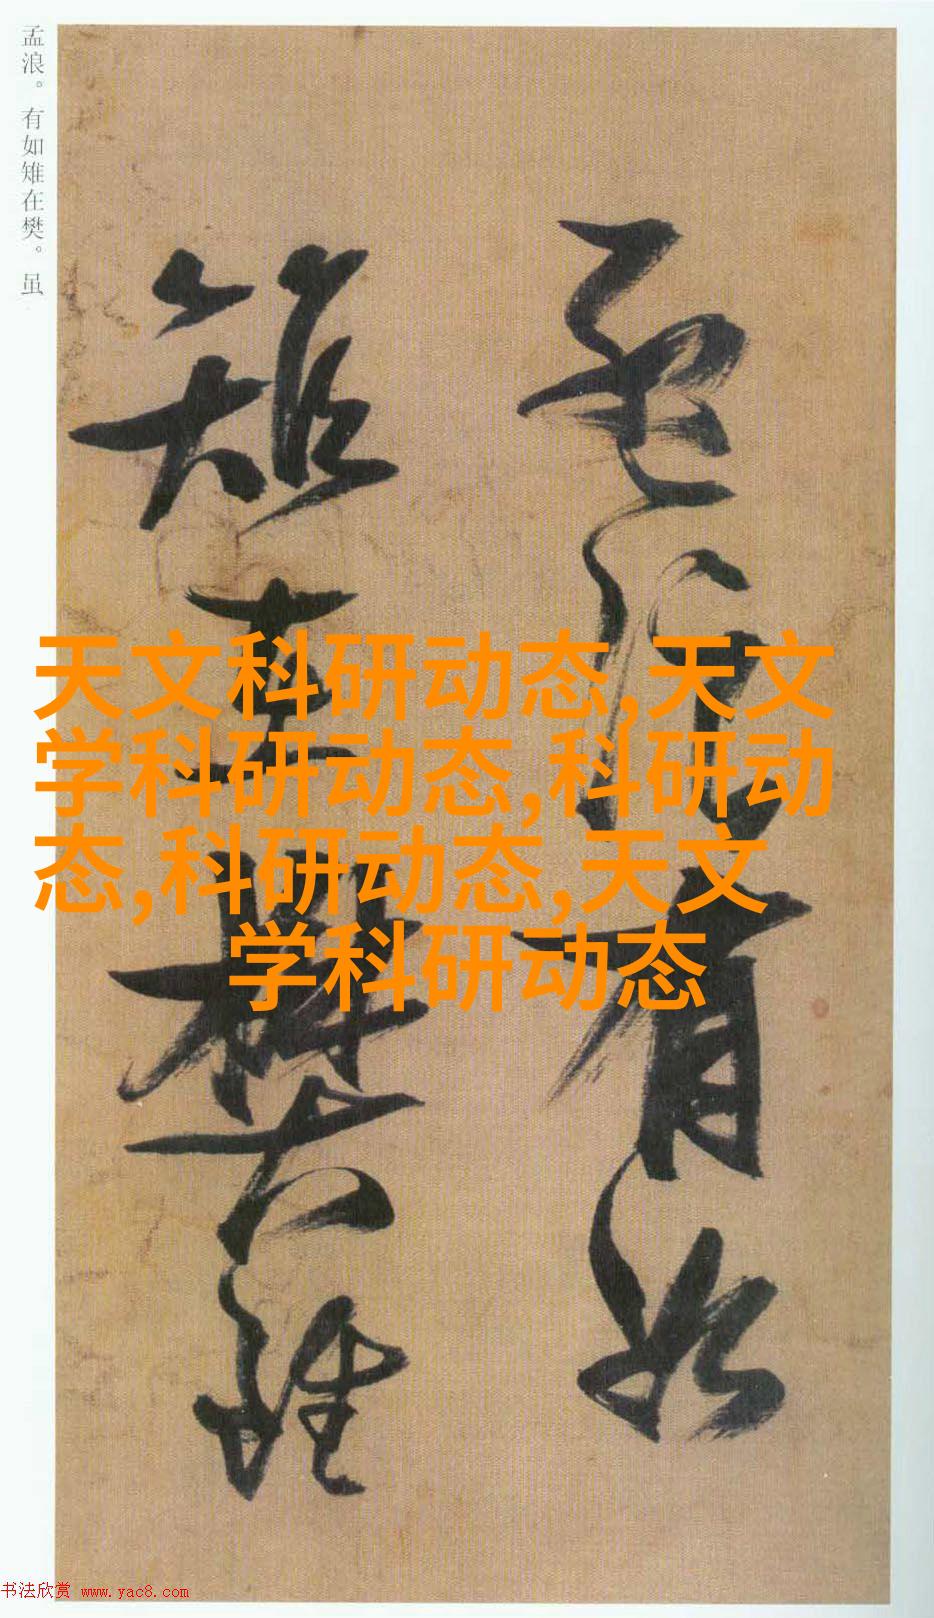 孟浪。有如雉在樊。虽
孟浪有如
雉在樊雖
天文科研动态,天文
学科研动态,科研动
态,科研动态,天文
学科研动态
书法欣赏 www.yac8.com